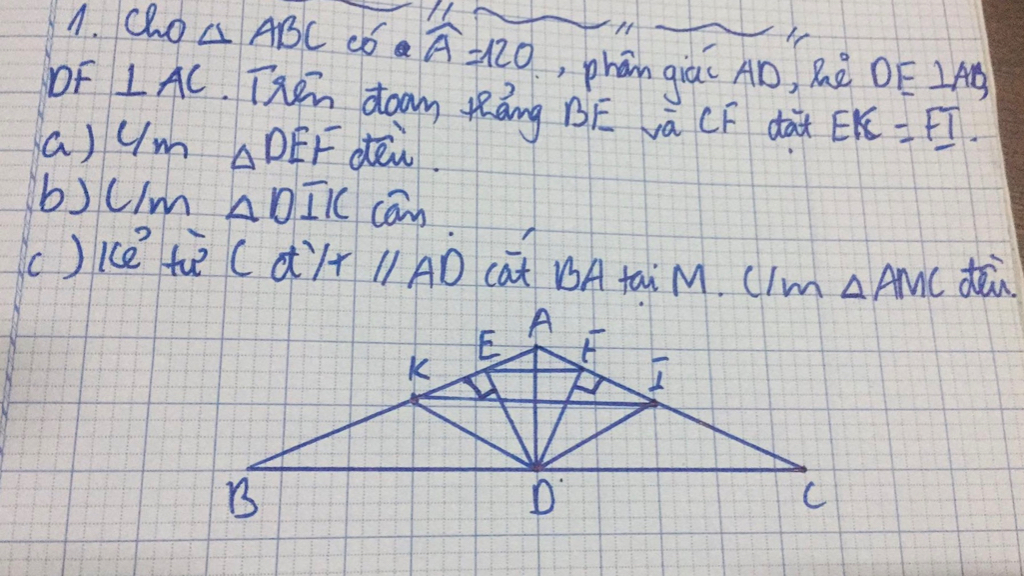 1. Cho △ ABC có Â = 120, phân giác AD, kẻ DE ⊥ AB,
DF ⊥ AC. Trên đoạn thẳng BE và CF đặt EK = FI.
a) C/m △ DEF đều.
b) C/m △ DIK cân.
c) Kẻ từ C đ'/t // AD cắt BA tại M. C/m △ AMC đều.
A
E F
K I
B D C